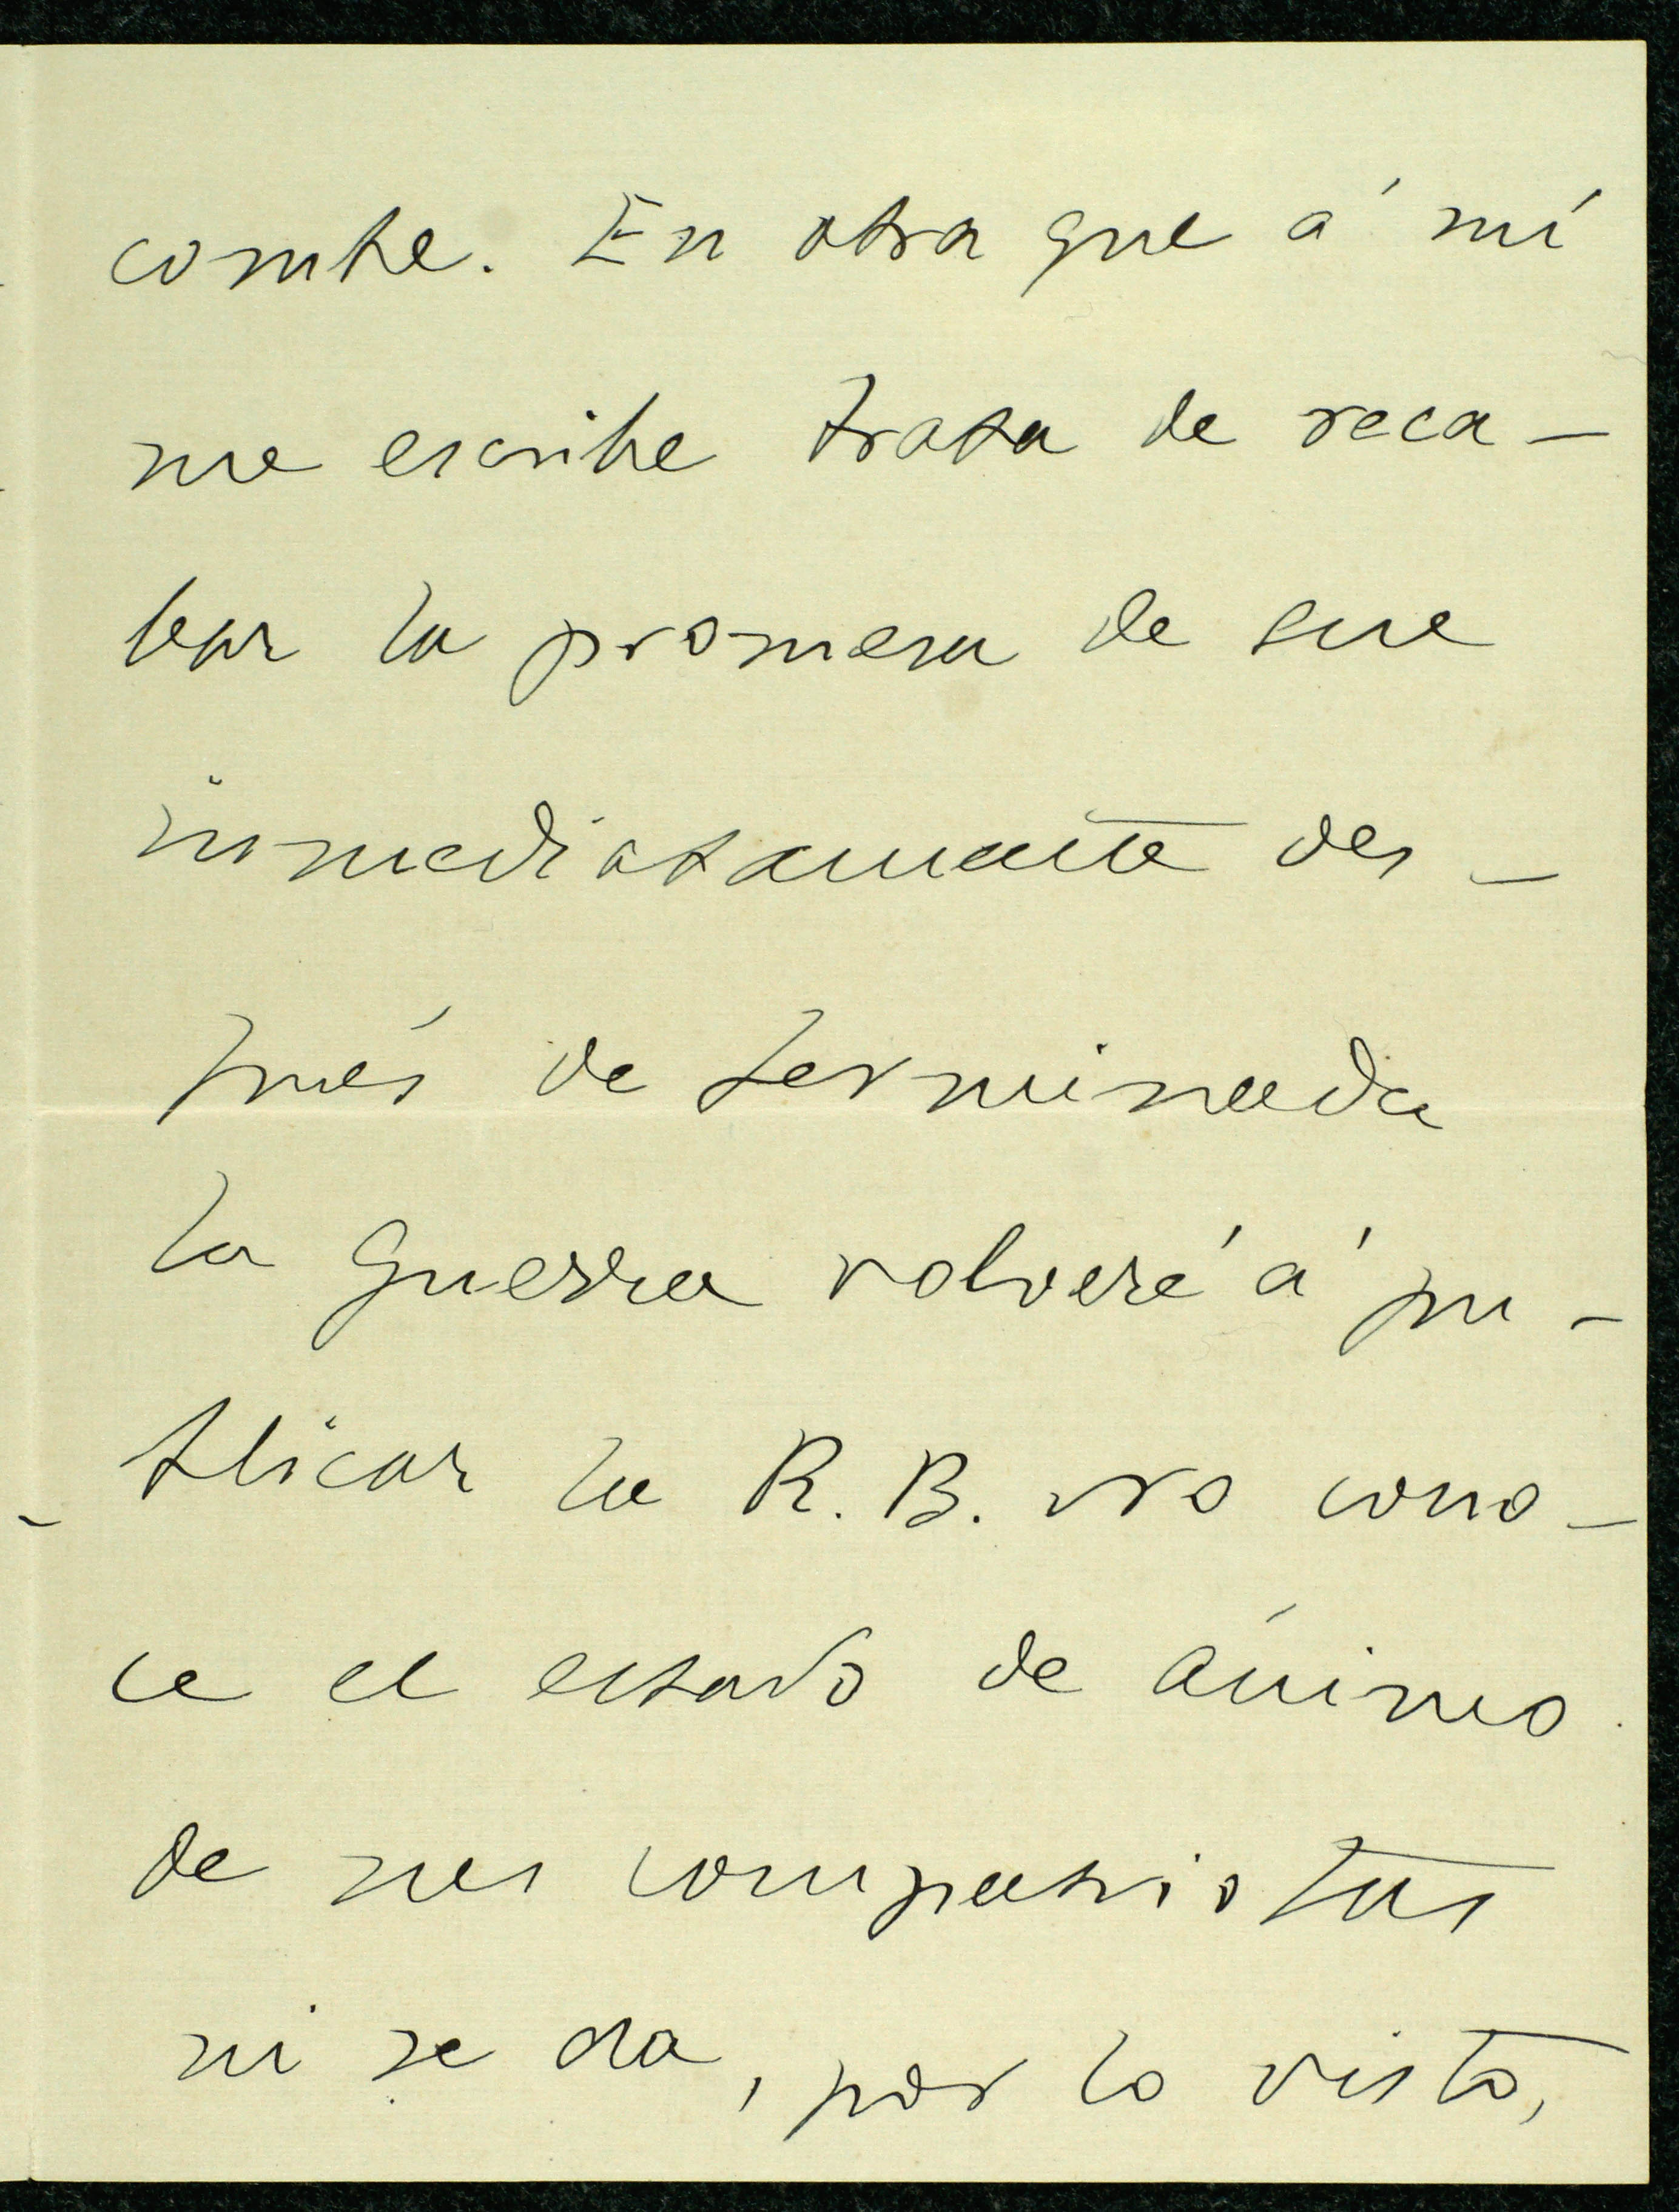 comite. En otra que á mí
me escribe trata de reca-
bar la promesa de que
inmediatamente des-
pués de terminada
la guerra volveré á pu-
blicar la R. B. No cono-
ce el estado de ánimo
de sus compatriotas
ni se da, por lo visto,